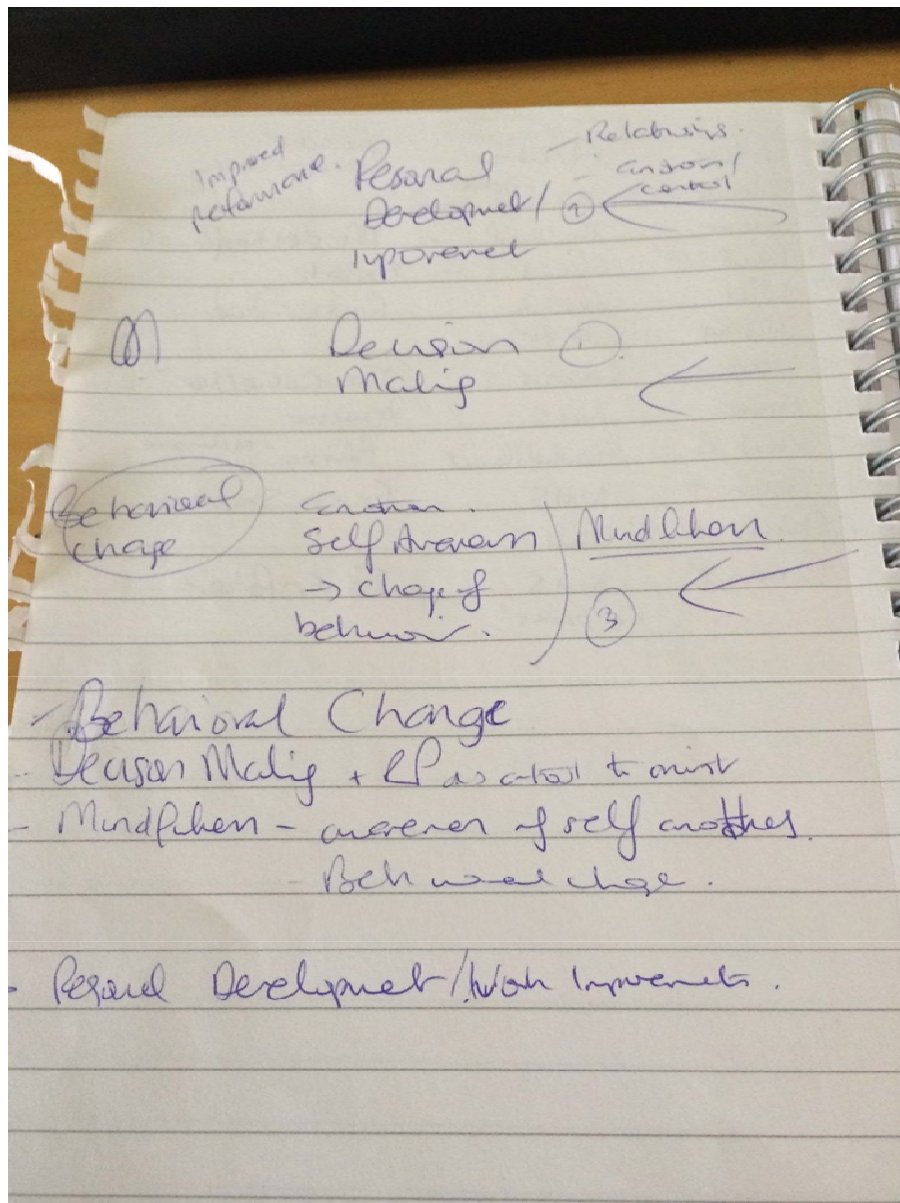 Improved
performance.
Personal
Development/
Improvement
- Relationships.
- Emotion/
control
Decision ①
Making
Behavioural
change
Emotion.
Self Awareness
→ change of
behaviour.
Mindfulness
③
- Behavioral Change
- Decision Making + RP as a tool to
- Mindfulness - awareness of self and others.
- Behavioural change.
- Personal Development/Work Improvements.